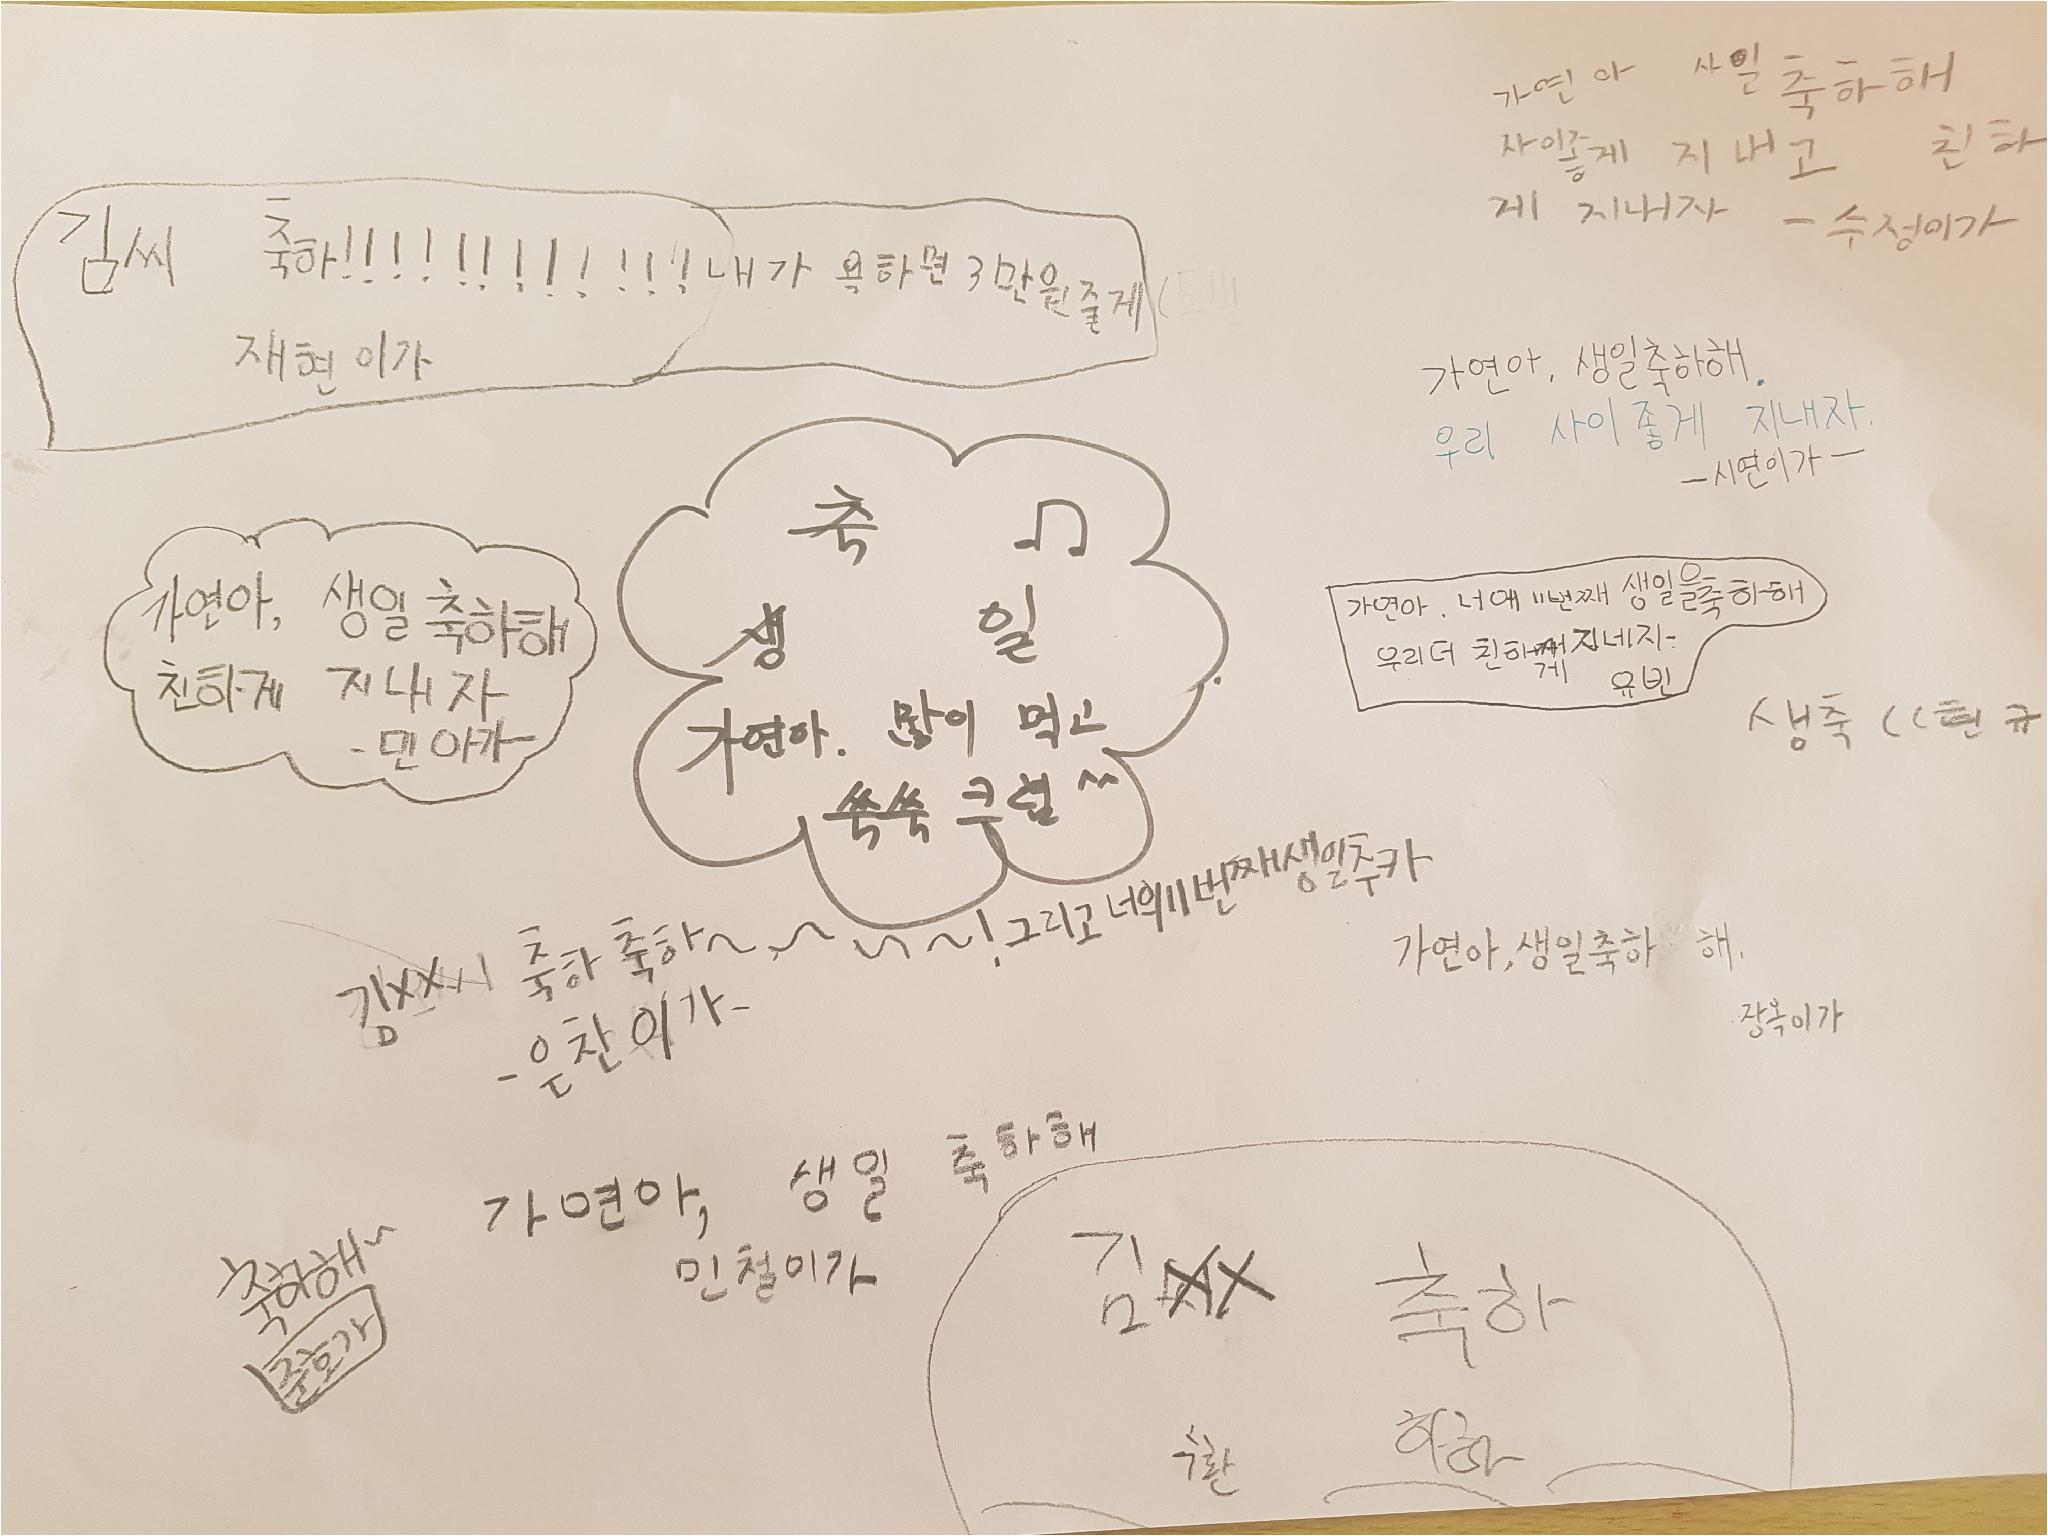 가연아 사일 축하해
사이좋게 지내고 친하
게 지내자 - 수정이가
김씨 축하!!!!!!!!!!!! 내가 욕하면 3만원줄게
재현이가
가연아, 생일축하해.
우리 사이좋게 지내자.
-시연이가-
축 ♫
생 일
가연아. 많이 먹고
쑥쑥 크렴 ^^
가연아, 생일축하해
친하게 지내자
-민아가-
가연아. 너에 11번째 생일을축하해
우리더 친하게 지네자-
유빈
생축 ((현규
김xx시 축하 축하~~~~! 그리고 너의 11번째생일추카
-은찬이가-
가연아,생일축하 해.
장옥이가
가연아, 생일 축하해
민철이가
축하해~
준호가
김xxx 축하
하하